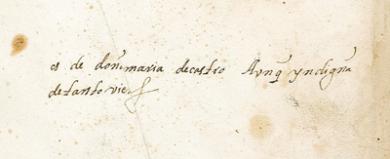 es de donmaria decastro Avnq̃ yndigna
de tanto vien